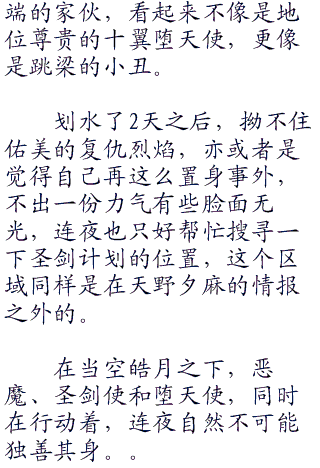 端的家伙，看起来不像是地
位尊贵的十翼堕天使，更像
是跳梁的小丑。
划水了2天之后，拗不住
佑美的复仇烈焰，亦或者是
觉得自己再这么置身事外，
不出一份力气有些脸面无
光，连夜也只好帮忙搜寻一
下圣剑计划的位置，这个区
域同样是在天野夕麻的情报
之外的。
在当空皓月之下，恶
魔、圣剑使和堕天使，同时
在行动着，连夜自然不可能
独善其身。。